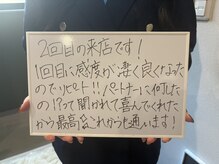 2回目の来店です!
1回目に感度が凄く良くなった
のでリピート!!パートナーに何した
の!?って聞かれて喜んでくれた
から最高♡これからも通います!